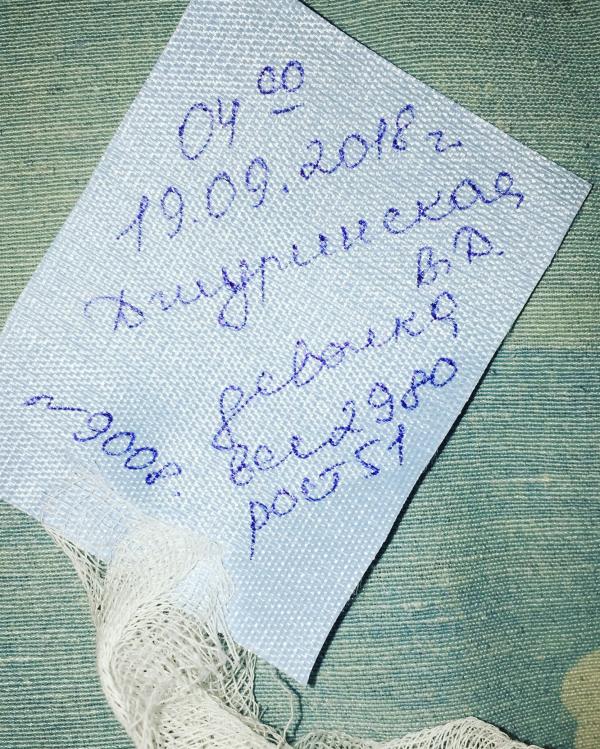 04 00
19.09.2018г
Джуринская
В.Д.
девочка
вес 2980
рост 51